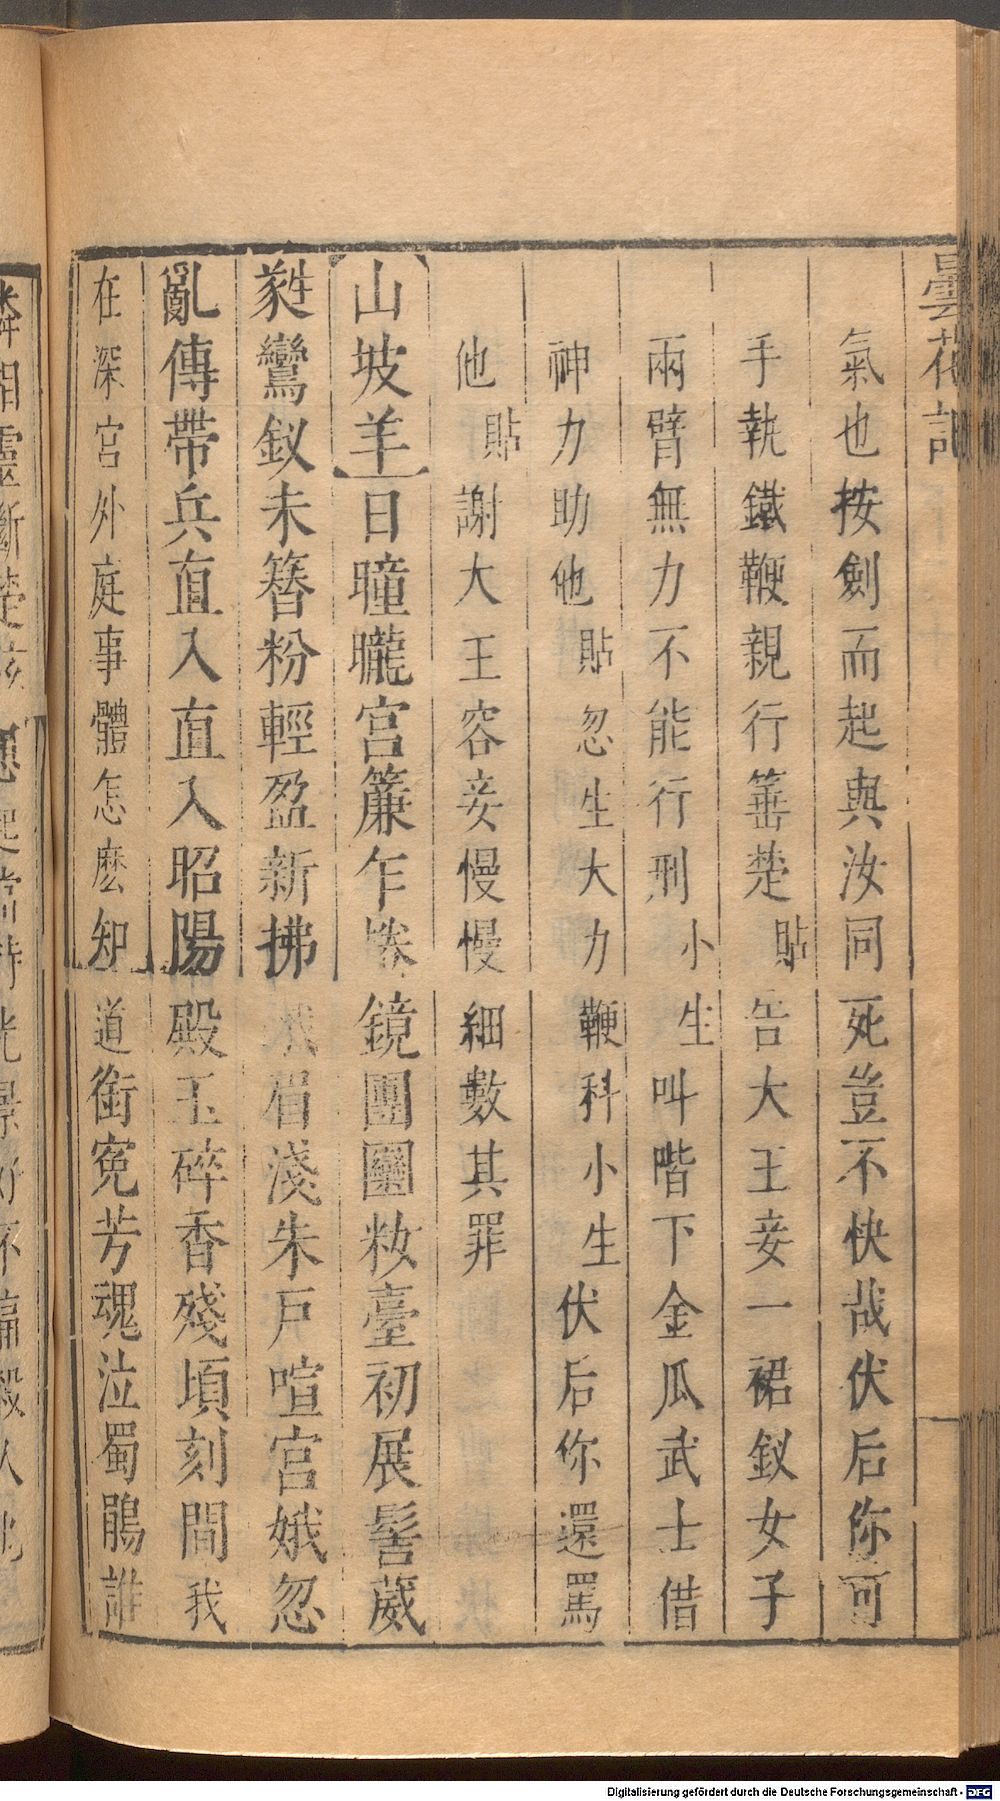 曇花記
氣也按劍而起與汝同死豈不快哉伏后你可
手執鐵鞭親行箠楚貼告大王妾一裙釵女子
兩臂無力不能行刑小生叫階下金瓜武士借
神力助他貼忽生大力鞭科小生伏后你還罵
他貼謝大王容妾慢慢細數其罪
山坡羊日曈曨宮簾乍捲鏡團圞妝臺初展髻葳
蕤鸞釵未簪粉輕盈新拂蛾眉淺朱戶喧宮娥忽
亂傳帶兵直入直入昭陽殿玉碎香殘頃刻間我
在深宮外庭事體怎麽知道銜冤芳魂泣蜀鵑誰
Digitalisierung gefördert durch die Deutsche Forschungsgemeinschaft - DFG